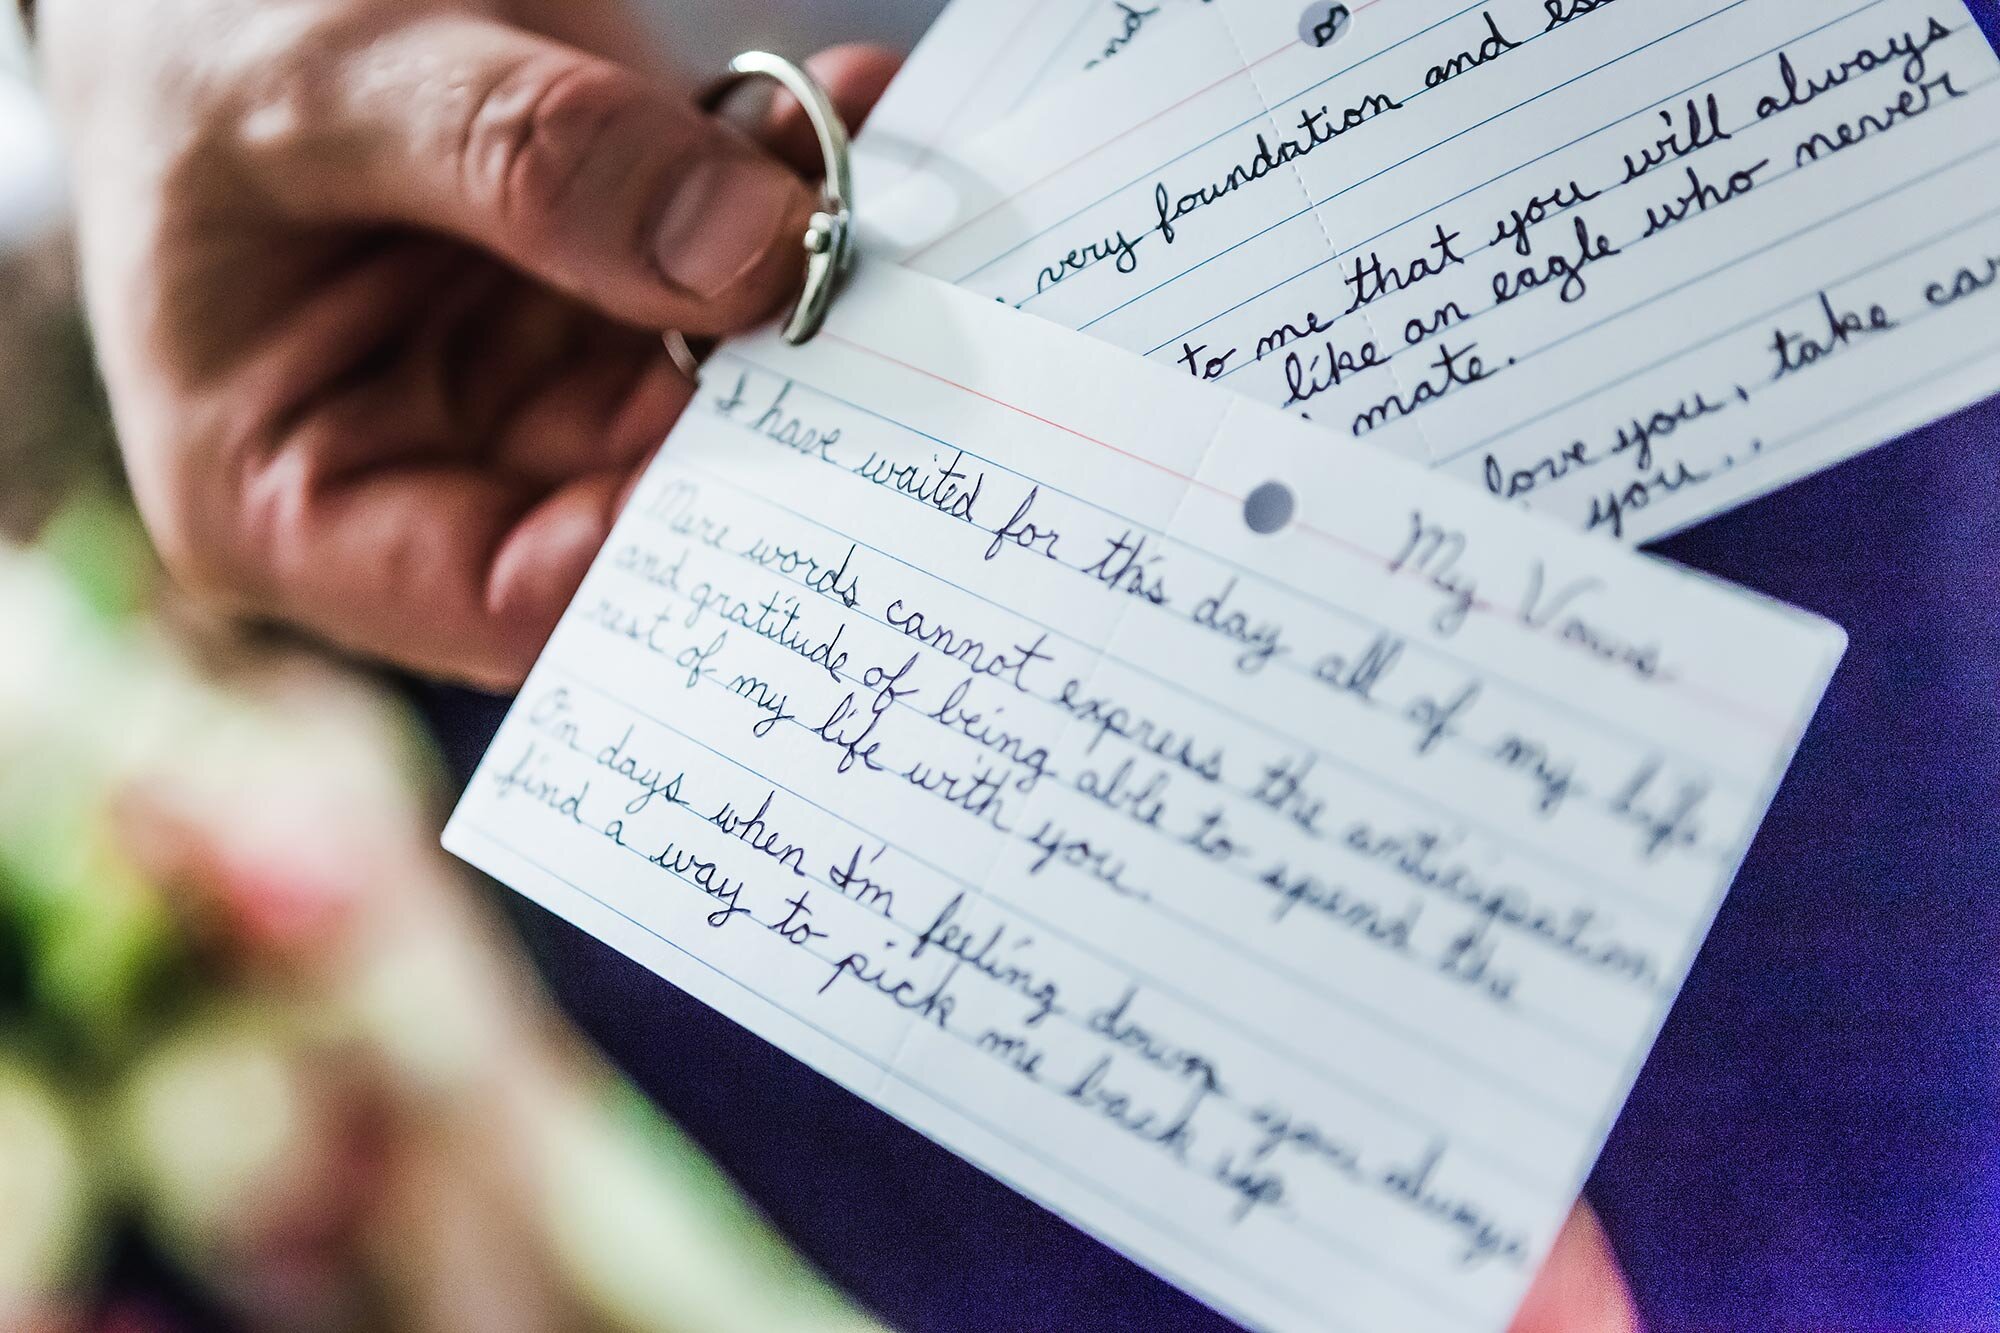 and
very foundation and
to me that you will always
like an eagle who never
mate.
love you, take
you...
My Vows
I have waited for this day all of my life.
Mere words cannot express the anticipation,
and gratitude of being able to spend the
rest of my life with you.
On days when I'm feeling down you always
find a way to pick me back up